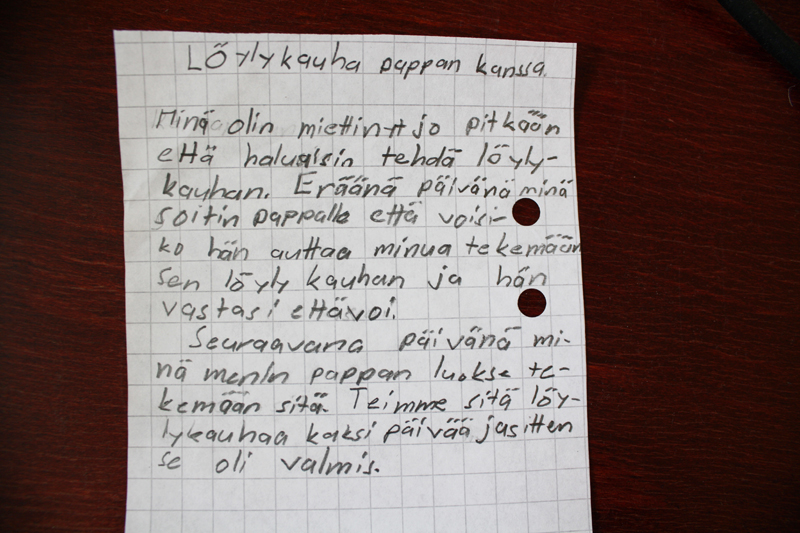 Löylykauha pappan kanssa.
Minä olin miettinyt jo pitkään
että haluaisin tehdä löyly-
kauhan. Eräänä päivänä minä
soitin pappalle että voisi-
ko hän auttaa minua tekemään
sen löyly kauhan ja hän
vastasi että voi.
Seuraavana päivänä mi-
nä menin pappan luokse te-
kemään sitä. Teimme sitä löy-
lykauhaa kaksi päivää ja sitten
se oli valmis.